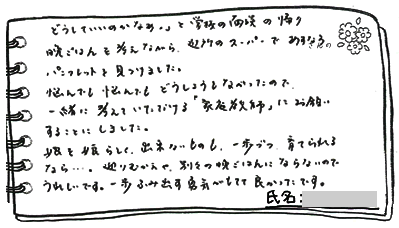 どうしていいのかなぁ。」と学校の面談の帰り
晩ごはんを考えながら、近所のスーパーで
パンフレットを見つけました。
悩んでも悩んでもどうしようもなかったので、
一緒に考えていただける「家庭教師」にお願い
することにしました。
娘を娘らしく、出来ないものも、一歩づつ、育てられる
なら…。送りむかえや、別々の晩ごはんにならないので
うれしいです。一歩ふみ出す勇気がもてて良かったです。
氏名: